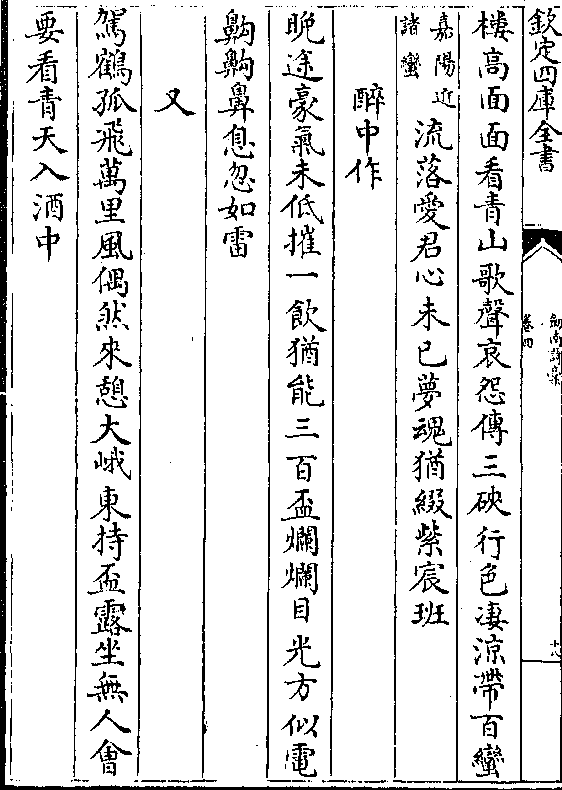 欽定四庫全書
劍南詩稾
卷四
十八
樓高面面看青山歌聲哀怨傳三硤行色淒涼帶百蠻
嘉陽近
諸蠻
流落愛君心未已夢魂猶綴紫宸班
醉中作
晚途豪氣未低摧一飲猶能三百盃爛爛目光方似電
齁齁鼻息忽如雷
又
駕鶴孤飛萬里風偶然來憩大峨東持盃露坐無人會
要看青天入酒中